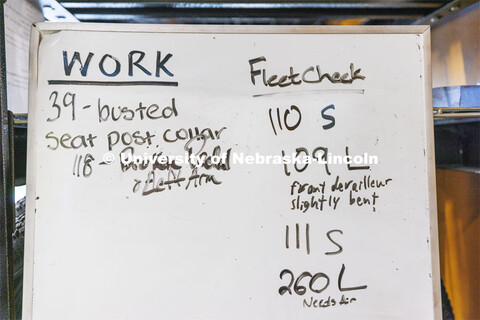 WORK
39 - busted
seat post collar
118 -
Left Arm
Fleet Check
110 S
109 L
front derailleur
slightly bent
111 S
260 L
Needs air
© University of Nebraska-Lincoln